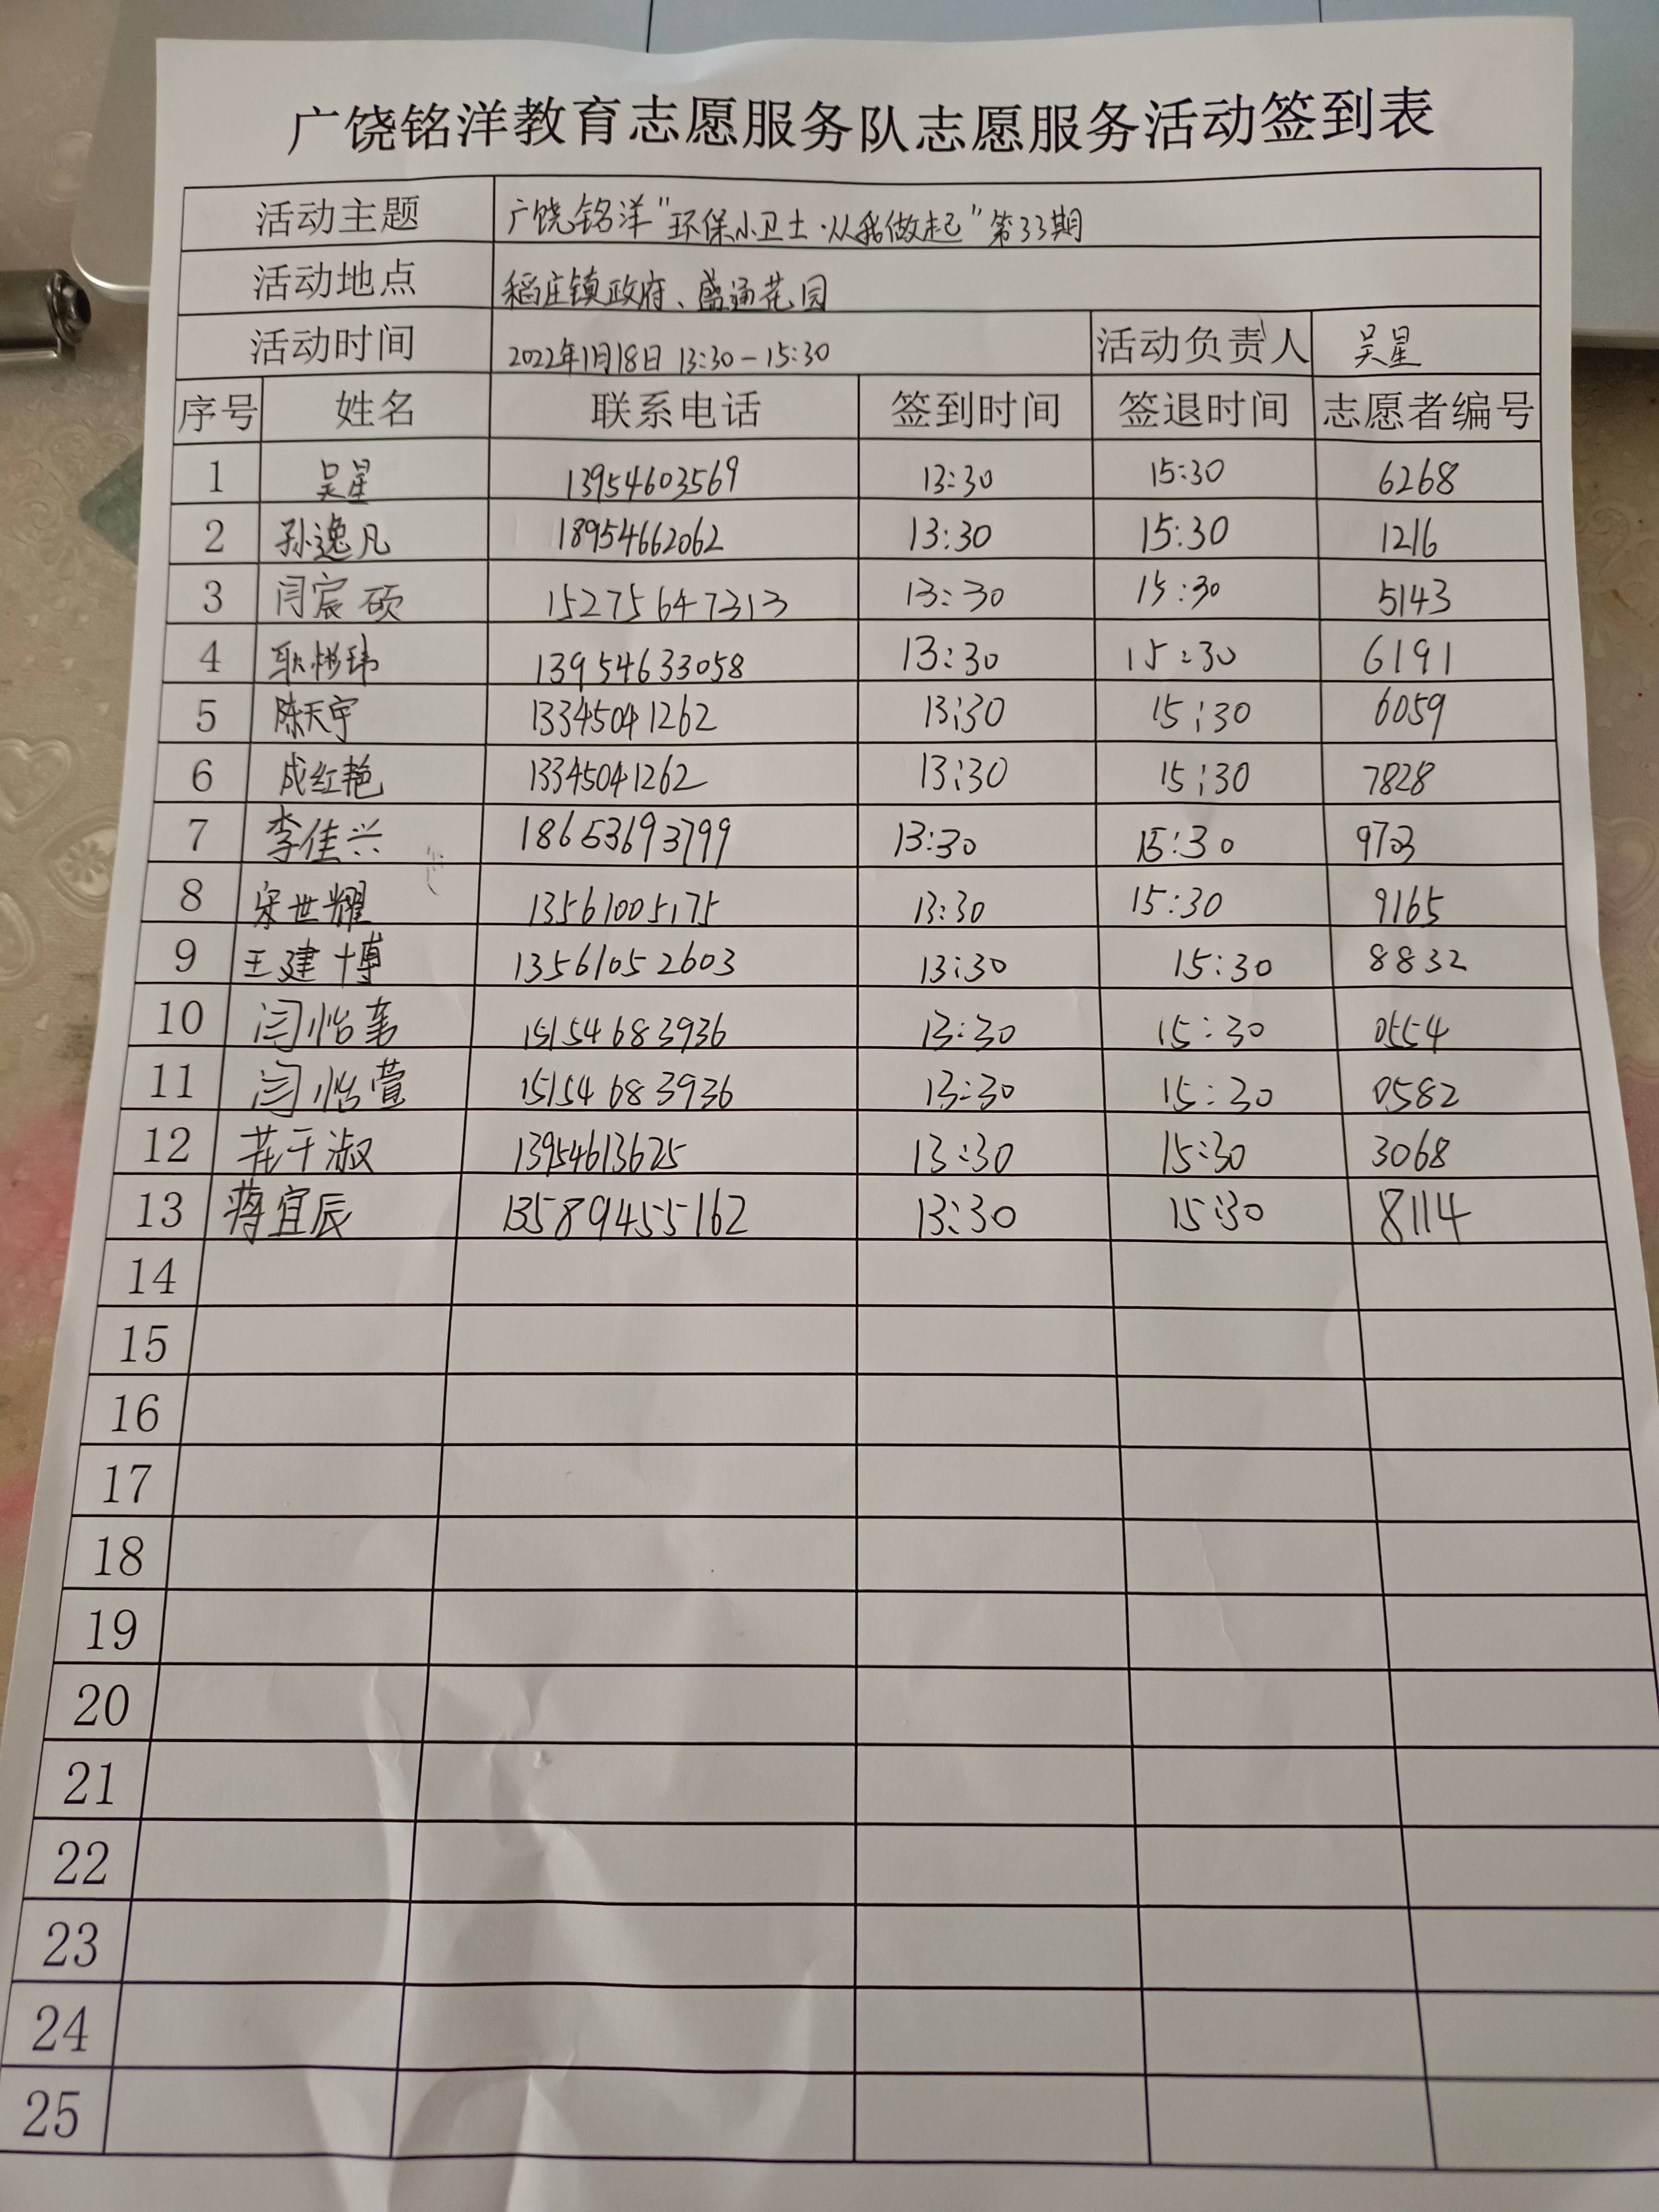 广饶铭洋教育志愿服务队志愿服务活动签到表
活动主题 广饶铭洋"环保小卫士·从我做起"第33期
活动地点 稻庄镇政府、盛通花园
活动时间 2022年1月18日 13:30-15:30 活动负责人 吴星
序号 姓名 联系电话 签到时间 签退时间 志愿者编号
1 吴星 13954603569 13:30 15:30 6268
2 孙逸凡 18954662062 13:30 15:30 1216
3 闫宸硕 15275647313 13:30 15:30 5143
4 耿彬玮 13954633058 13:30 15:30 6191
5 陈天宇 13345041262 13:30 15:30 6059
6 成红艳 13345041262 13:30 15:30 7828
7 李佳兴 18653693799 13:30 15:30
8 宋世耀 13561005175 13:30 15:30 9165
9 王建博 13561052603 13:30 15:30 8832
10 闫怡 15154683936 13:30 15:30 0554
11 闫怡萱 15154683936 13:30 15:30 0582
12 花千淑 13954613625 13:30 15:30 3068
13 蒋宜辰 13589455162 13:30 15:30 8114
14
15
16
17
18
19
20
21
22
23
24
25